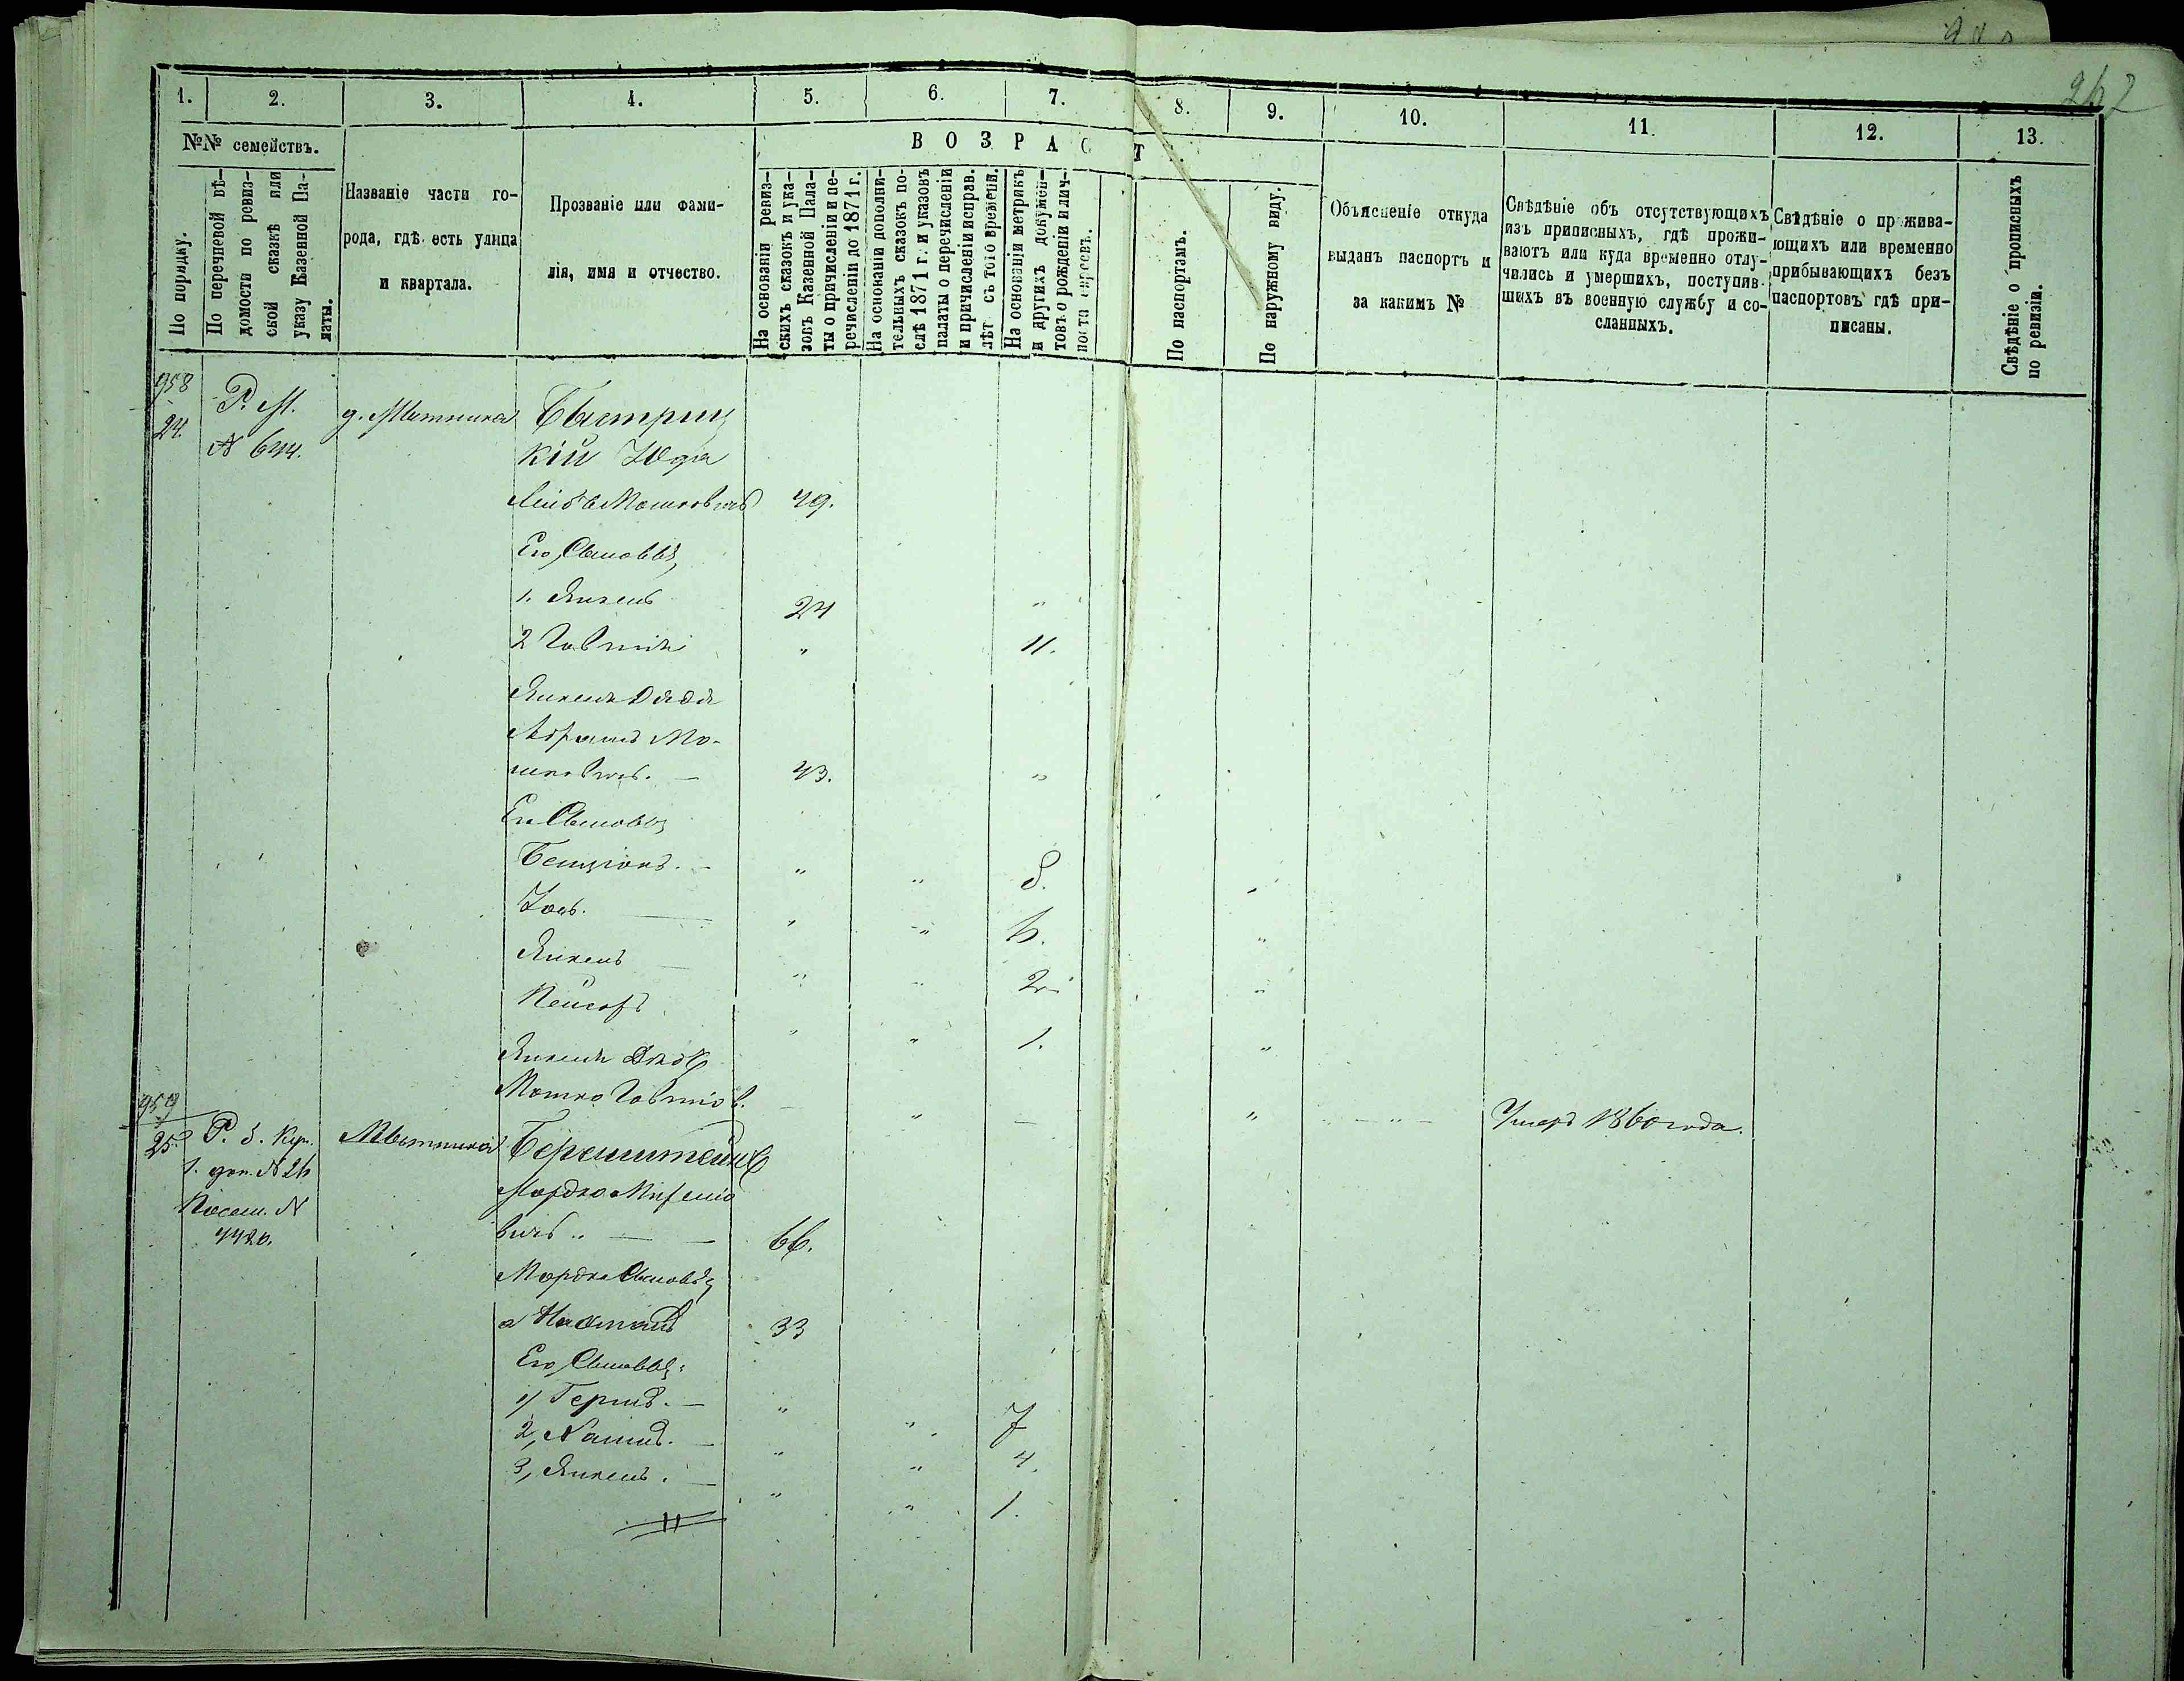 262
1. 2. 3. 4. 5. 6. 7. 8. 9. 10. 11. 12. 13.
№№ семействъ.
В О З Р А С Т
По порядку.
По перечневой вѣ-
домости по ревиз-
ской сказкѣ или
указу Казенной Па-
латы.
Названіе части го-
рода, гдѣ есть улица
и квартала.
Прозваніе или фами-
лія, имя и отчество.
На основаніи ревиз-
скихъ сказокъ и ука-
зовъ Казенной Пала-
ты о причисленіи и пе-
речисленіи до 1871 г.
На основаніи дополни-
тельныхъ сказокъ по-
слѣ 1871 г. и указовъ
палаты о перечисленіи
и причисленіи исправ.
лѣт съ того времени.
На основаніи метрикъ
и другихъ докумен-
товъ о рожденіи и лич-
ности евреевъ.
По паспортамъ.
По наружному виду.
Объясненіе откуда
выданъ паспортъ и
за какимъ №
Свѣдѣніе объ отсутствующихъ
изъ приписныхъ, гдѣ прожи-
ваютъ или куда временно отлу-
чились и умершихъ, поступив-
шихъ въ военную службу и со-
сланныхъ.
Свѣдѣніе о прожива-
ющихъ или временно
прибывающихъ безъ
паспортовъ гдѣ при-
писаны.
Свѣдѣніе о прописныхъ
по ревизіи.
958
24.
Р. М.
№ 644.
Быстриц
кій Юда
Лейбъ Мошковичъ 49.
Его Сыновья
1. Янкель 24 "
2 Говшія " 11.
Янкеля Дядя
Абрамъ Мо-
шковичъ. — 43. "
Его Сыновья
Бенціонъ. — " " 8. "
Іось. — " " 6. "
Янкель — " " 2. "
Пейсахъ " " 1. "
Янкеля Дядя
Мошко Говшіов. — " — " — " — Умеръ 1860 года.
959
25.
Р. 8. Куп.
1. доп. № 26
Посем. №
4420.
Беренштейнъ
Мордко
вичъ .. — — 66.
Мордка Сыновья
а 33
Его Сыновья:
1, Гершъ. — " " 7
2, — " " 4.
3, Янкель. — " " 1.